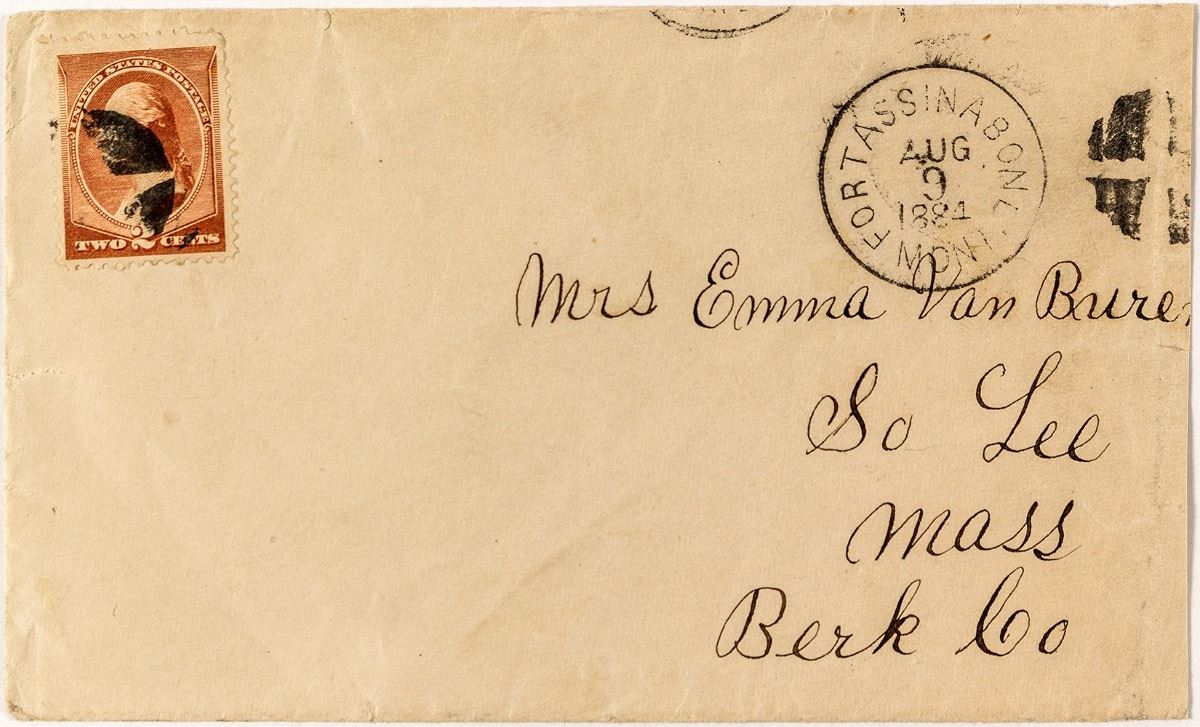 UNITED STATES POSTAGE
TWO 2 CENTS
FORT ASSINABONE
MONT.
AUG
9
1884
Mrs Emma Van Buren
So Lee
Mass
Berk Co